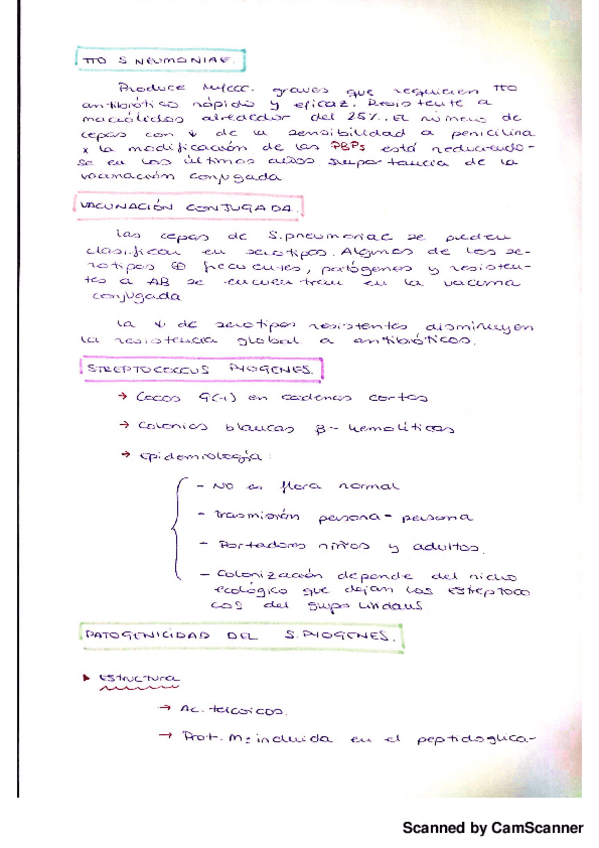 TTO S NEUMONIAE.
Produce infecc. graves que requieren TTO
antibiótico rápido y eficaz. Resistente a
macrólidos alrededor del 25%. El número de
cepas con ↓ de la sensibilidad a penicilina
x la modificación de las PBPs está reduciendo-
se en los últimos años. Importancia de la
vacunación conjugada
VACUNACIÓN CONJUGADA.
Las cepas de S.pneumoniae se pueden
clasificar en serotipos. Algunos de los se-
rotipos ⊕ frecuentes, patógenos y resisten-
tes a AB se encuentran en la vacuna
conjugada
La ↓ de serotipos resistentes disminuyen
la resistencia global a antibióticos.
STREPTOCOCCUS PYOGENES.
→ Cocos G(+) en cadenas cortas
→ Colonias blancas β-hemolíticas
→ Epidemiología:
- NO en flora normal
- Trasmisión persona-persona
- Portadores niños y adultos.
- Colonización depende del nicho
ecológico que dejan los estreptoco
cos del grupo viridans
PATOGENICIDAD DEL S.PYOGENES.
▸ Estructura
→ Ac. teicoicos.
→ Prot. M: incluida en el peptidoglica-
Scanned by CamScanner